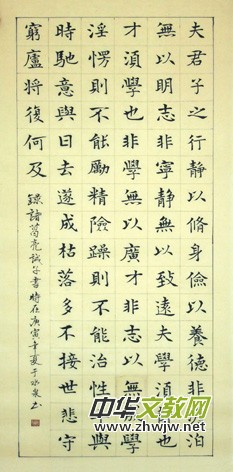 夫君子之行靜以脩身儉以養德非澹泊
無以明志非寧靜無以致遠夫學須靜也
才須學也非學無以廣才非志無以成學
淫慢則不能勵精險躁則不能治性年與
時馳意與日去遂成枯落多不接世悲守
窮廬將復何及
錄諸葛亮誡子書時在庚寅年夏于
中华文教网
www.zhwjw.net